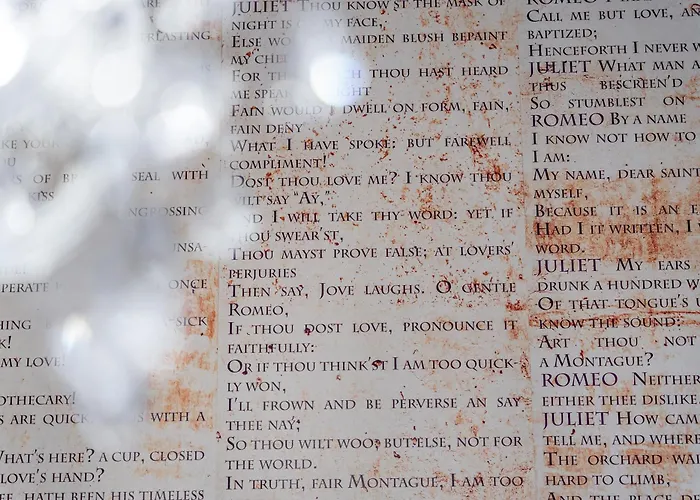 ARE
ERLASTING
KE YOUR
U
S OF BR SEAL WITH
KISS
NGROSSING
UNSA-
PERATE ONCE
HING SICK
K!
MY LOVE!
OTHECARY!
S ARE QUICK. S WITH A
WHAT'S HERE? A CUP, CLOSED
LOVE'S HAND?
HATH BEEN HIS TIMELESS
JULIET THOU KNOW'ST THE MASK OF
NIGHT IS MY FACE,
ELSE WO MAIDEN BLUSH BEPAINT
MY CHE
FOR TH H THOU HAST HEARD
ME SPEA GHT
FAIN WOULD I DWELL ON FORM, FAIN,
FAIN DENY
WHAT I HAVE SPOKE: BUT FAREWELL
COMPLIMENT!
DOST THOU LOVE ME? I KNOW THOU
WILT SAY "AY,"
AND I WILL TAKE THY WORD: YET IF
THOU SWEAR'ST,
THOU MAYST PROVE FALSE; AT LOVERS'
PERJURIES
THEN SAY, JOVE LAUGHS. O GENTLE
ROMEO,
IF THOU DOST LOVE, PRONOUNCE IT
FAITHFULLY:
OR IF THOU THINK'ST I AM TOO QUICK-
LY WON,
I'LL FROWN AND BE PERVERSE AN SAY
THEE NAY;
SO THOU WILT WOO; BUT ELSE, NOT FOR
THE WORLD.
IN TRUTH, FAIR MONTAGUE, I AM TOO
ROMEO
CALL ME BUT LOVE, AN
BAPTIZED;
HENCEFORTH I NEVER W
JULIET WHAT MAN A
THUS BESCREEN'D
SO STUMBLEST ON
ROMEO BY A NAME
I KNOW NOT HOW TO
I AM:
MY NAME, DEAR SAINT
MYSELF,
BECAUSE IT IS AN E
HAD I IT WRITTEN, I W
WORD.
JULIET MY EARS
DRUNK A HUNDRED W
OF THAT TONGUE'S U
KNOW THE SOUND:
ART THOU NOT
A MONTAGUE?
ROMEO NEITHER
EITHER THEE DISLIKE.
JULIET HOW CAM
TELL ME, AND WHERE
THE ORCHARD WAL
HARD TO CLIMB,
AND THE PLACE D